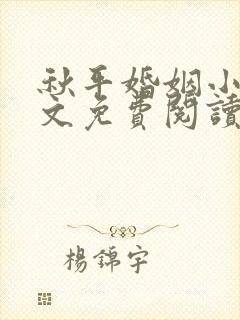 秋平婚姻小
文免費閱讀
楊錦宇